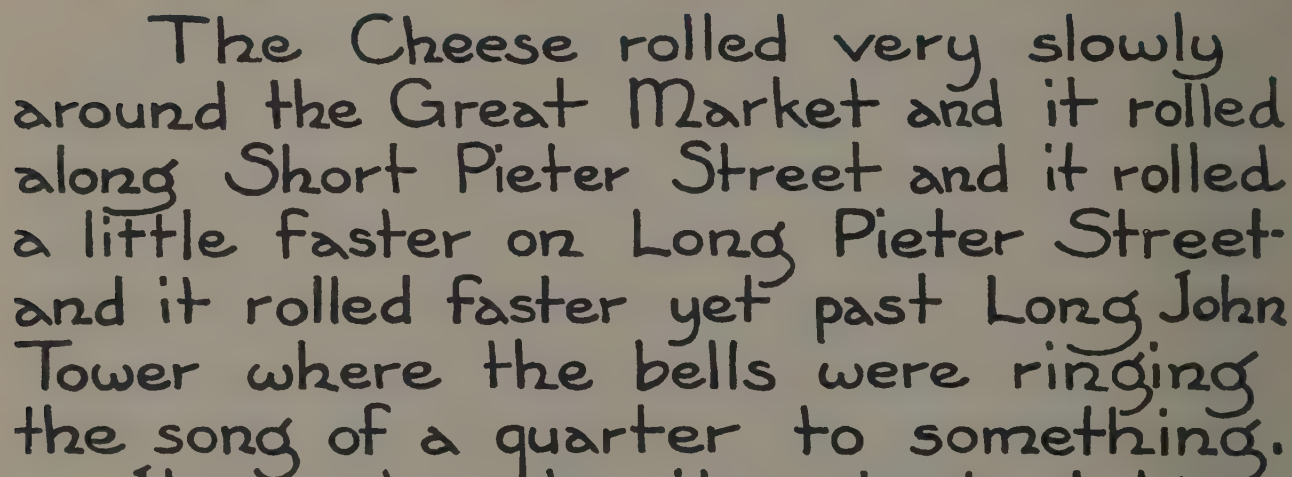 The Cheese rolled very slowly
around the Great Market and it rolled
along Short Pieter Street and it rolled
a little faster on Long Pieter Street
and it rolled faster yet past Long John
Tower where the bells were ringing
the song of a quarter to something.